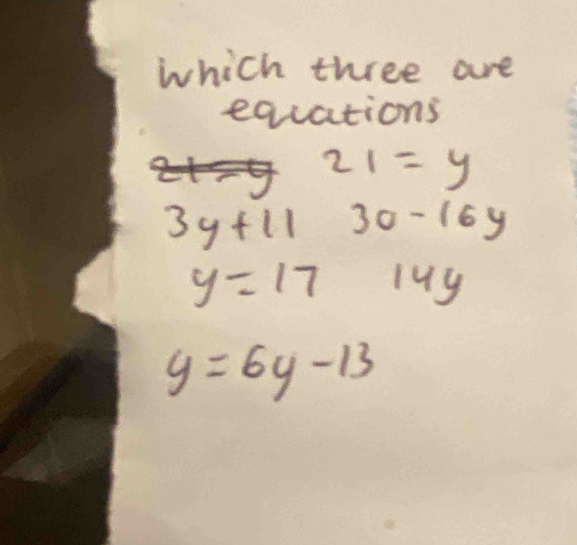 which three are
equations
21=y 21 = y
3y+11 30-16y
y=17 14y
y=6y-13